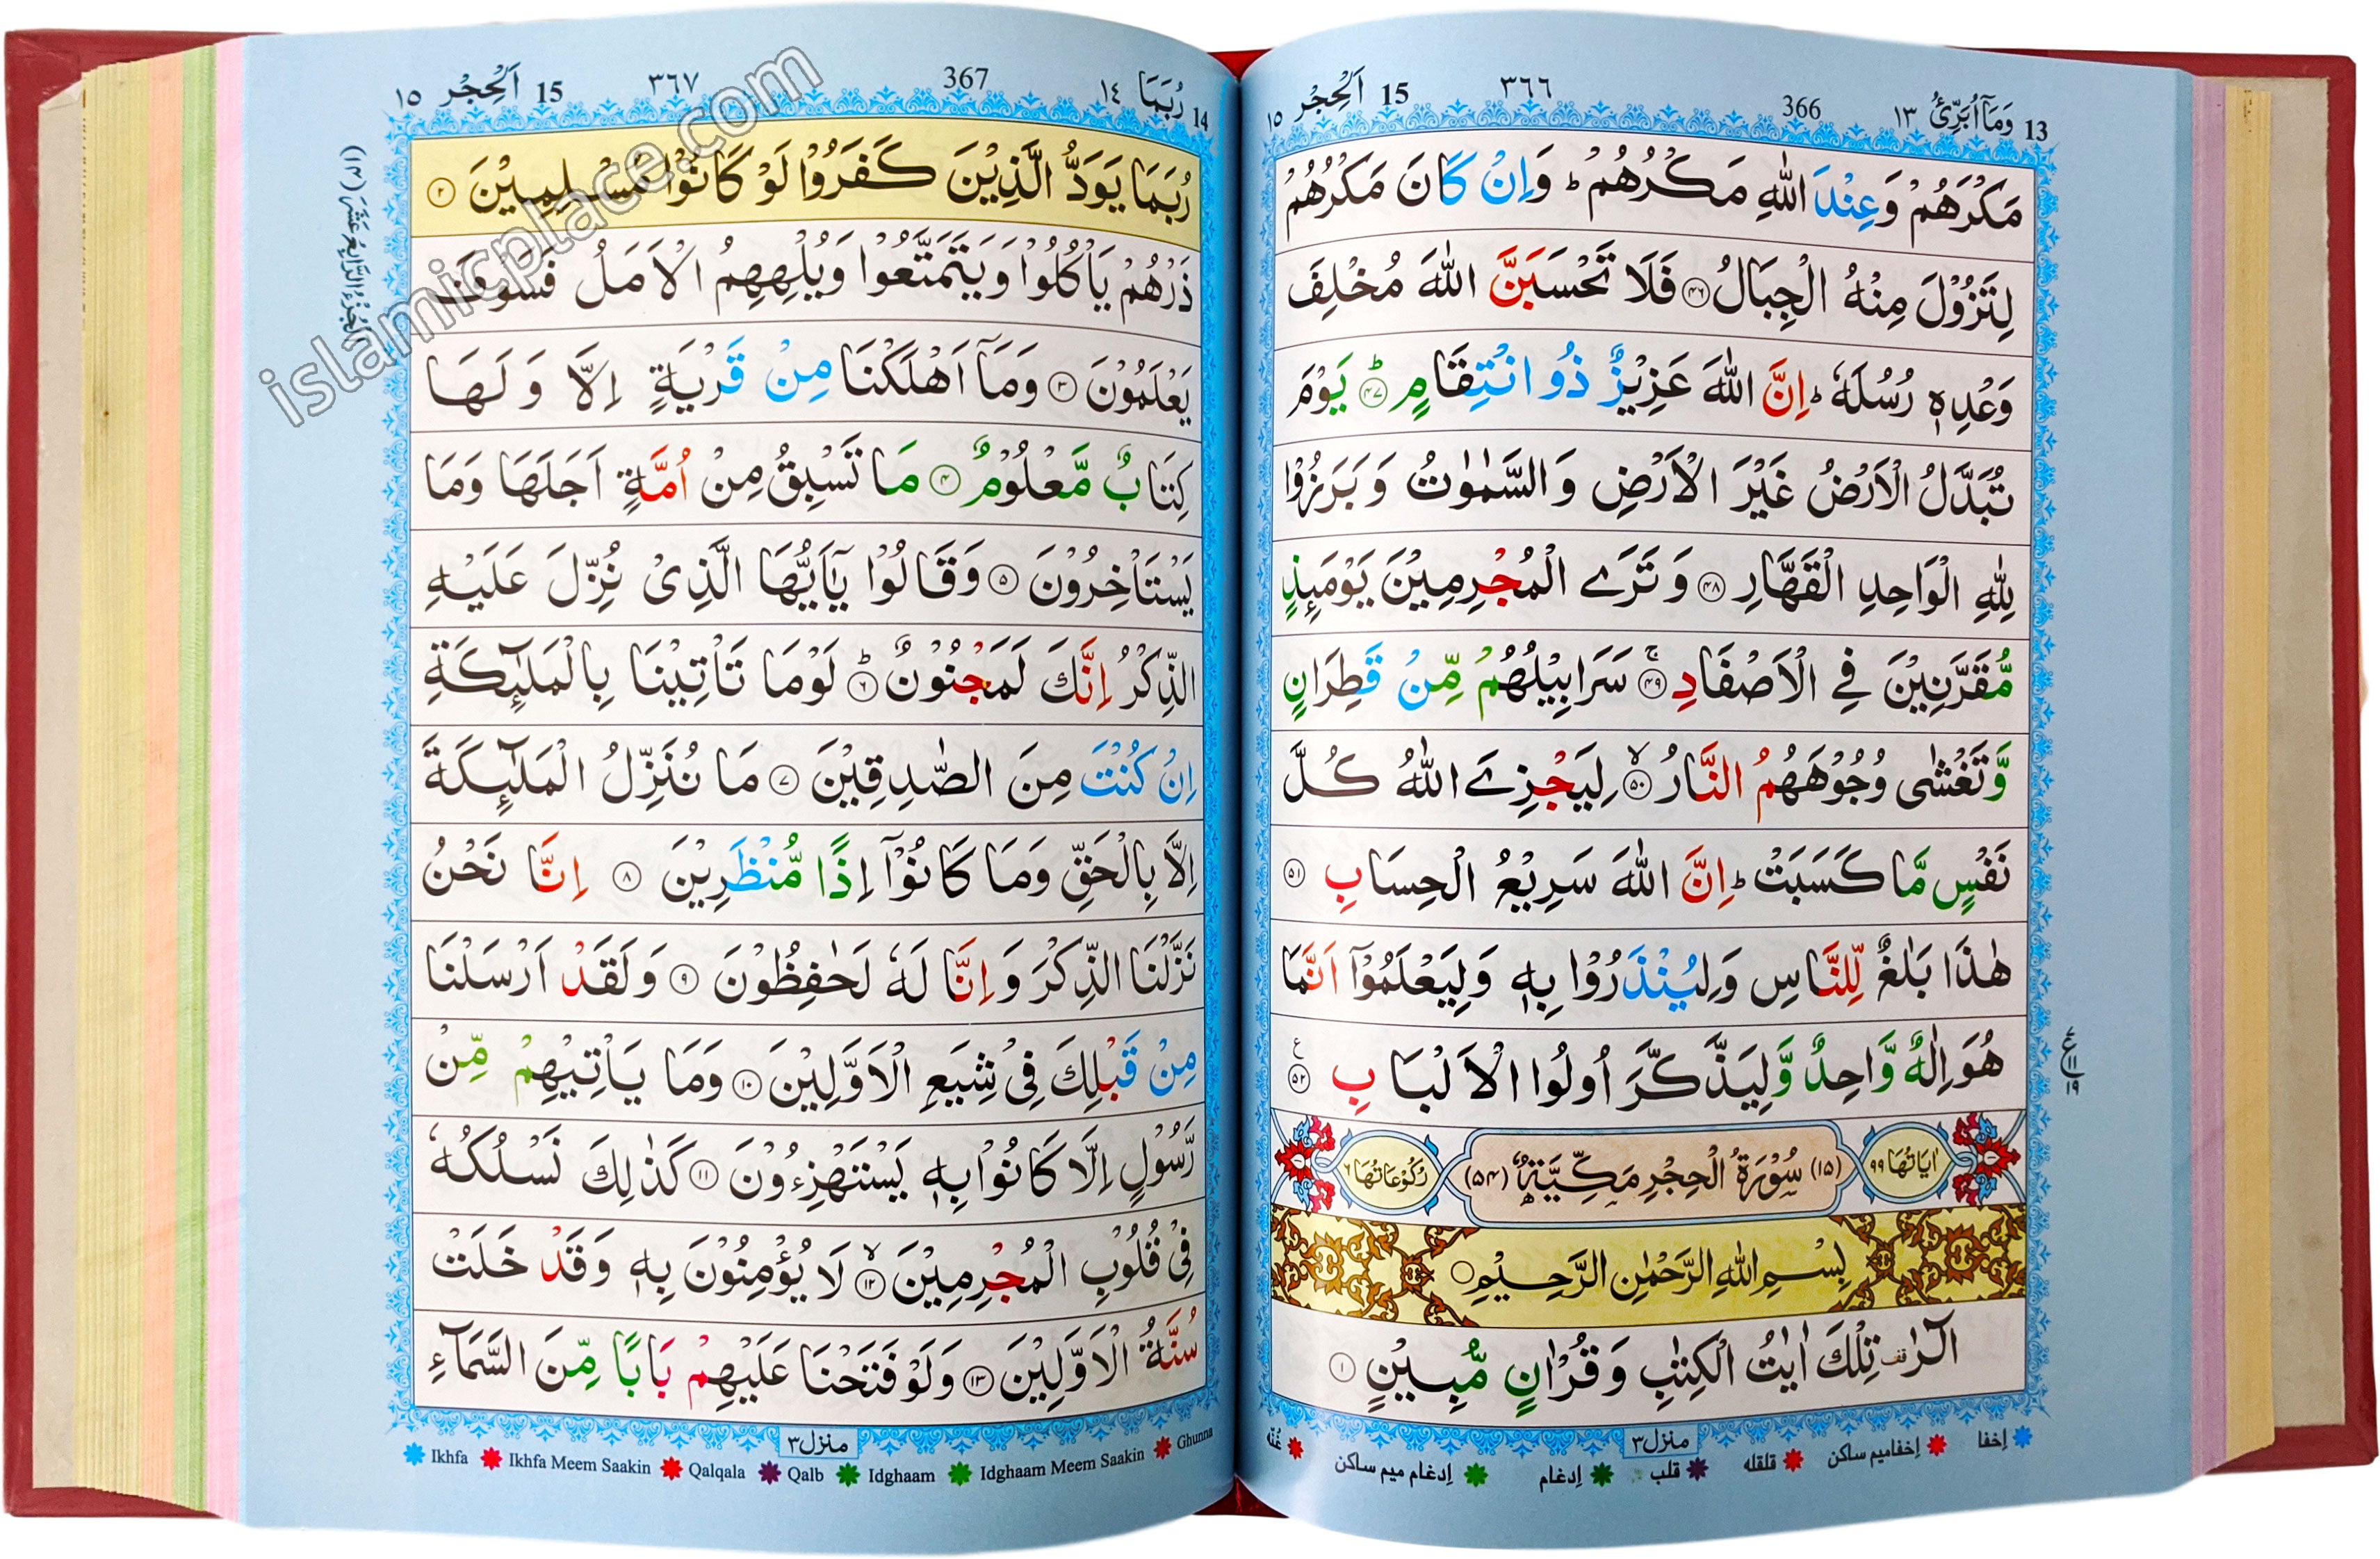 13 وَمَآ اُبَرِّئُ ١٣ 366 ٣٦٦ 15 اَلْحِجْر ١٥
مَكْرَهُمْ وَعِنْدَ اللّٰهِ مَكْرُهُمْ ؕ وَاِنْ كَانَ مَكْرُهُمْ
لِتَزُوْلَ مِنْهُ الْجِبَالُ ۴۶ فَلَا تَحْسَبَنَّ اللّٰهَ مُخْلِفَ
وَعْدِهٖ رُسُلَهٗ ؕ اِنَّ اللّٰهَ عَزِيْزٌ ذُو انْتِقَامٍ ؕ ۴۷ يَوْمَ
تُبَدَّلُ الْاَرْضُ غَيْرَ الْاَرْضِ وَالسَّمٰوٰتُ وَبَرَزُوْا
لِلّٰهِ الْوَاحِدِ الْقَهَّارِ ۴۸ وَتَرَى الْمُجْرِمِيْنَ يَوْمَئِذٍ
مُّقَرَّنِيْنَ فِي الْاَصْفَادِ ۚ ۴۹ سَرَابِيْلُهُمْ مِّنْ قَطِرَانٍ
وَّتَغْشٰى وُجُوْهَهُمُ النَّارُ ۙ ۵۰ لِيَجْزِيَ اللّٰهُ كُلَّ
نَفْسٍ مَّا كَسَبَتْ ؕ اِنَّ اللّٰهَ سَرِيْعُ الْحِسَابِ ۵۱
هٰذَا بَلٰغٌ لِّلنَّاسِ وَلِيُنْذَرُوْا بِهٖ وَلِيَعْلَمُوْٓا اَنَّمَا
هُوَ اِلٰهٌ وَّاحِدٌ وَّلِيَذَّكَّرَ اُولُوا الْاَلْبَابِ ۵۲
ع ١١ ١٩
اٰيَاتُهَا ٩٩ (١٥) سُوْرَةُ الْحِجْرِ مَكِّيَّةٌ (۵۴) رُكُوْعَاتُهَا ۶
بِسْمِ اللّٰهِ الرَّحْمٰنِ الرَّحِيْمِ
الٓرٰ قف تِلْكَ اٰيٰتُ الْكِتٰبِ وَقُرْاٰنٍ مُّبِيْنٍ ١
منزل ٣
إخفا إخفا ميم ساكن قلقله قلب إدغام إدغام ميم ساكن غُنّه
14 رُبَمَا ١٤ 367 ٣٦٧ 15 اَلْحِجْر ١٥
اَلْجُزْءُ الرَّابِعُ عَشَرَ (١۴)
رُبَمَا يَوَدُّ الَّذِيْنَ كَفَرُوْا لَوْ كَانُوْا مُسْلِمِيْنَ ٢
ذَرْهُمْ يَاْكُلُوْا وَيَتَمَتَّعُوْا وَيُلْهِهِمُ الْاَمَلُ فَسَوْفَ
يَعْلَمُوْنَ ٣ وَمَآ اَهْلَكْنَا مِنْ قَرْيَةٍ اِلَّا وَلَهَا
كِتَابٌ مَّعْلُوْمٌ ۴ مَا تَسْبِقُ مِنْ اُمَّةٍ اَجَلَهَا وَمَا
يَسْتَاْخِرُوْنَ ۵ وَقَالُوْا يٰٓاَيُّهَا الَّذِيْ نُزِّلَ عَلَيْهِ
الذِّكْرُ اِنَّكَ لَمَجْنُوْنٌ ؕ ۶ لَوْمَا تَاْتِيْنَا بِالْمَلٰٓئِكَةِ
اِنْ كُنْتَ مِنَ الصّٰدِقِيْنَ ٧ مَا نُنَزِّلُ الْمَلٰٓئِكَةَ
اِلَّا بِالْحَقِّ وَمَا كَانُوْٓا اِذًا مُّنْظَرِيْنَ ٨ اِنَّا نَحْنُ
نَزَّلْنَا الذِّكْرَ وَاِنَّا لَهٗ لَحٰفِظُوْنَ ٩ وَلَقَدْ اَرْسَلْنَا
مِنْ قَبْلِكَ فِيْ شِيَعِ الْاَوَّلِيْنَ ١٠ وَمَا يَاْتِيْهِمْ مِّنْ
رَّسُوْلٍ اِلَّا كَانُوْا بِهٖ يَسْتَهْزِءُوْنَ ١١ كَذٰلِكَ نَسْلُكُهٗ
فِيْ قُلُوْبِ الْمُجْرِمِيْنَ ۙ ١٢ لَا يُؤْمِنُوْنَ بِهٖ وَقَدْ خَلَتْ
سُنَّةُ الْاَوَّلِيْنَ ١٣ وَلَوْ فَتَحْنَا عَلَيْهِمْ بَابًا مِّنَ السَّمَآءِ
منزل ٣
Ikhfa Ikhfa Meem Saakin Qalqala Qalb Idghaam Idghaam Meem Saakin Ghunna
islamicplace.com